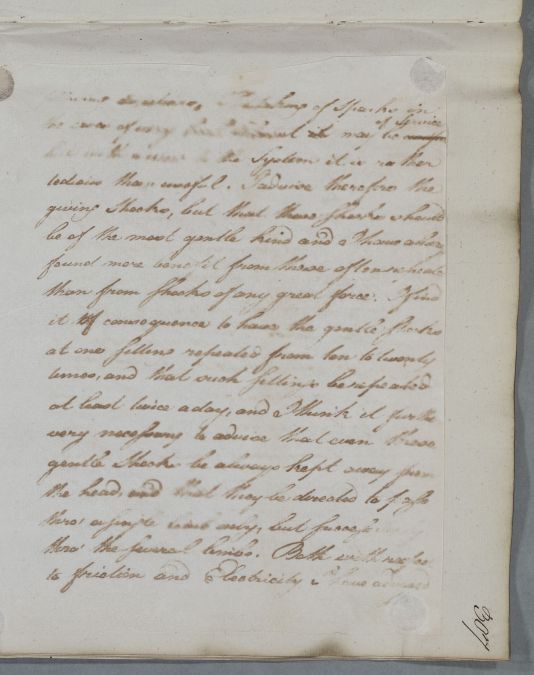 The taking of Sparks in
of Service
the case of any local ailment it may be
but with a view to the System it is rather
tedious than useful. I advise therefore the
giving Shocks, but that these Shocks should
be of the most gentle kind and I have always
found more benefit from these often repeated
than from Shocks of any great force. I find
it of consequence to have the gentle Shocks
at one sitting repeated from ten to twenty
times, and that such sittings be repeated
at least twice a day, and I think it further
very necessary to advise that even these
gentle Shocks be always kept away from
the head, and that they be directed to pass
thro' a single limb only, but successively
thro' the several limbs. Both with respect
to friction and Electricity I have advised
307